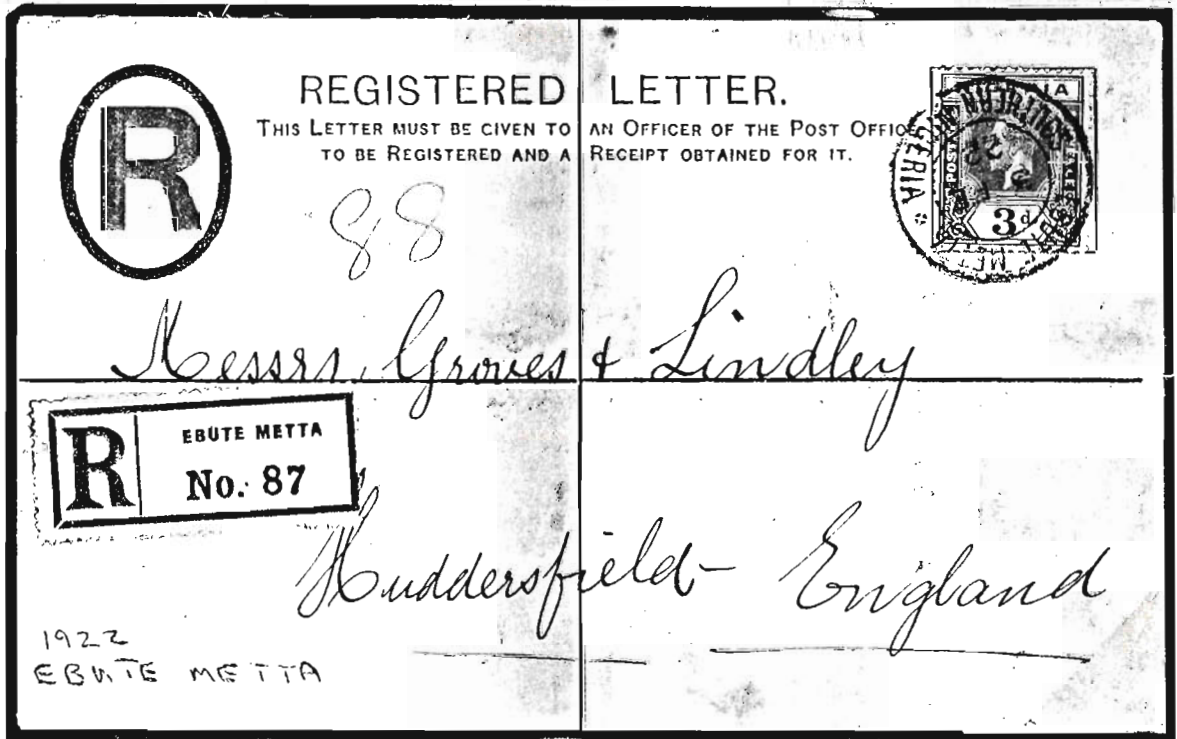 REGISTERED LETTER.
THIS LETTER MUST BE GIVEN TO AN OFFICER OF THE POST OFFICE
TO BE REGISTERED AND A RECEIPT OBTAINED FOR IT.
R
88
3d
Messrs. Groves & Lindley
R
EBUTE METTA
No. 87
Huddersfield - England
1922
EBUTE METTA